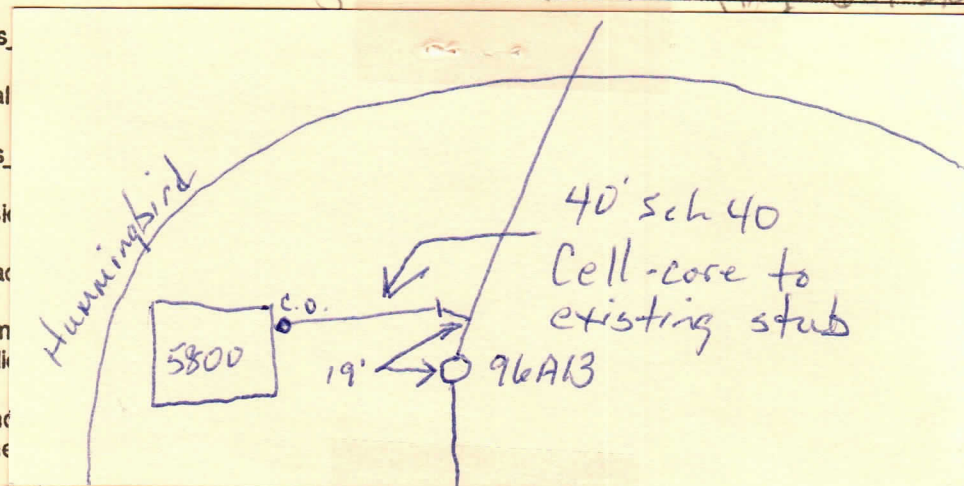 Hummingbird
40' sch 40
Cell-core to
existing stub
C.O.
5800
19'
96A13